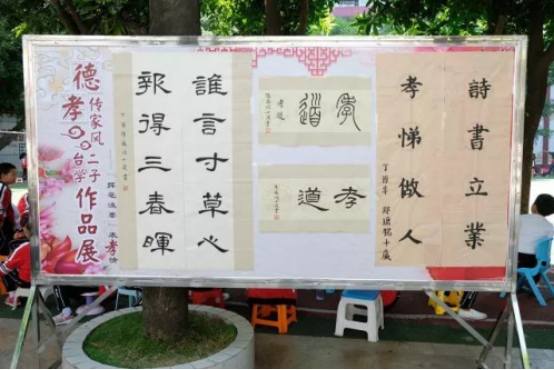 德孝传家风
台学二子
作品展
誰言寸草心
報得三春暉
孝道
孝道
孝道
詩書立業
孝悌做人